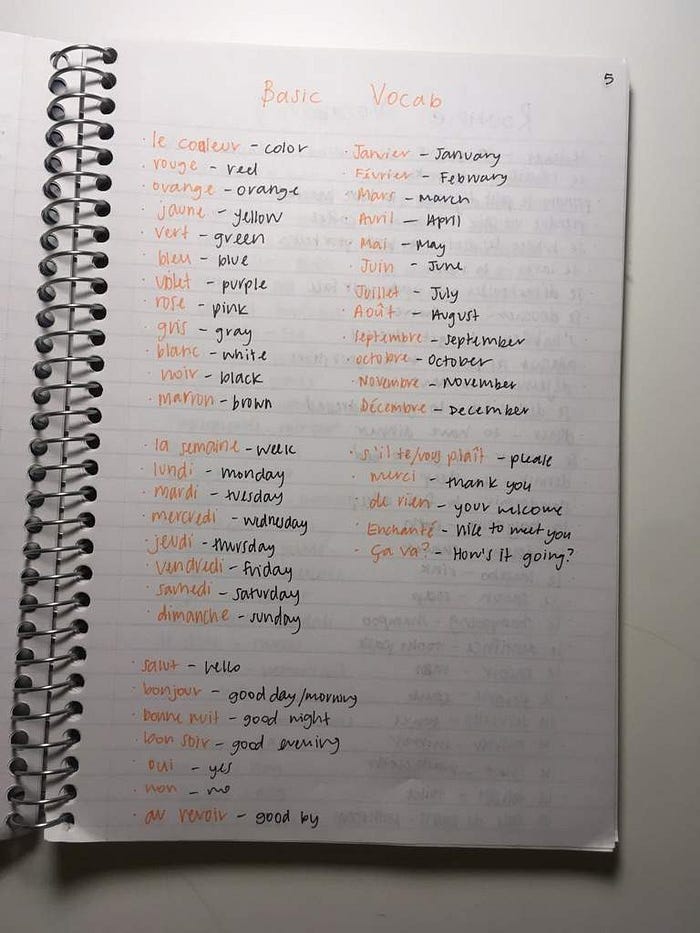 5
Basic Vocab
· le couleur - color
· rouge - red
· orange - orange
· jaune - yellow
· vert - green
· bleu - blue
· violet - purple
· rose - pink
· gris - gray
· blanc - white
· noir - black
· marron - brown
· la semaine - week
· lundi - monday
· mardi - tuesday
· mercredi - wednesday
· jeudi - thursday
· vendredi - friday
· samedi - saturday
· dimanche - sunday
· salut - hello
· bonjour - good day/morning
· bonne nuit - good night
· bon soir - good evening
· oui - yes
· non - no
· au revoir - good by
· Janvier - January
· Février - February
· Mars - march
· Avril - April
· Mai - May
· Juin - June
· Juillet - July
· Août - August
· Septembre - september
· octobre - October
· Novembre - November
· Décembre - December
· s'il te/vous plaît - please
· merci - thank you
· de rien - your welcome
· Enchanté - nice to meet you
· Ça va? - How's it going?